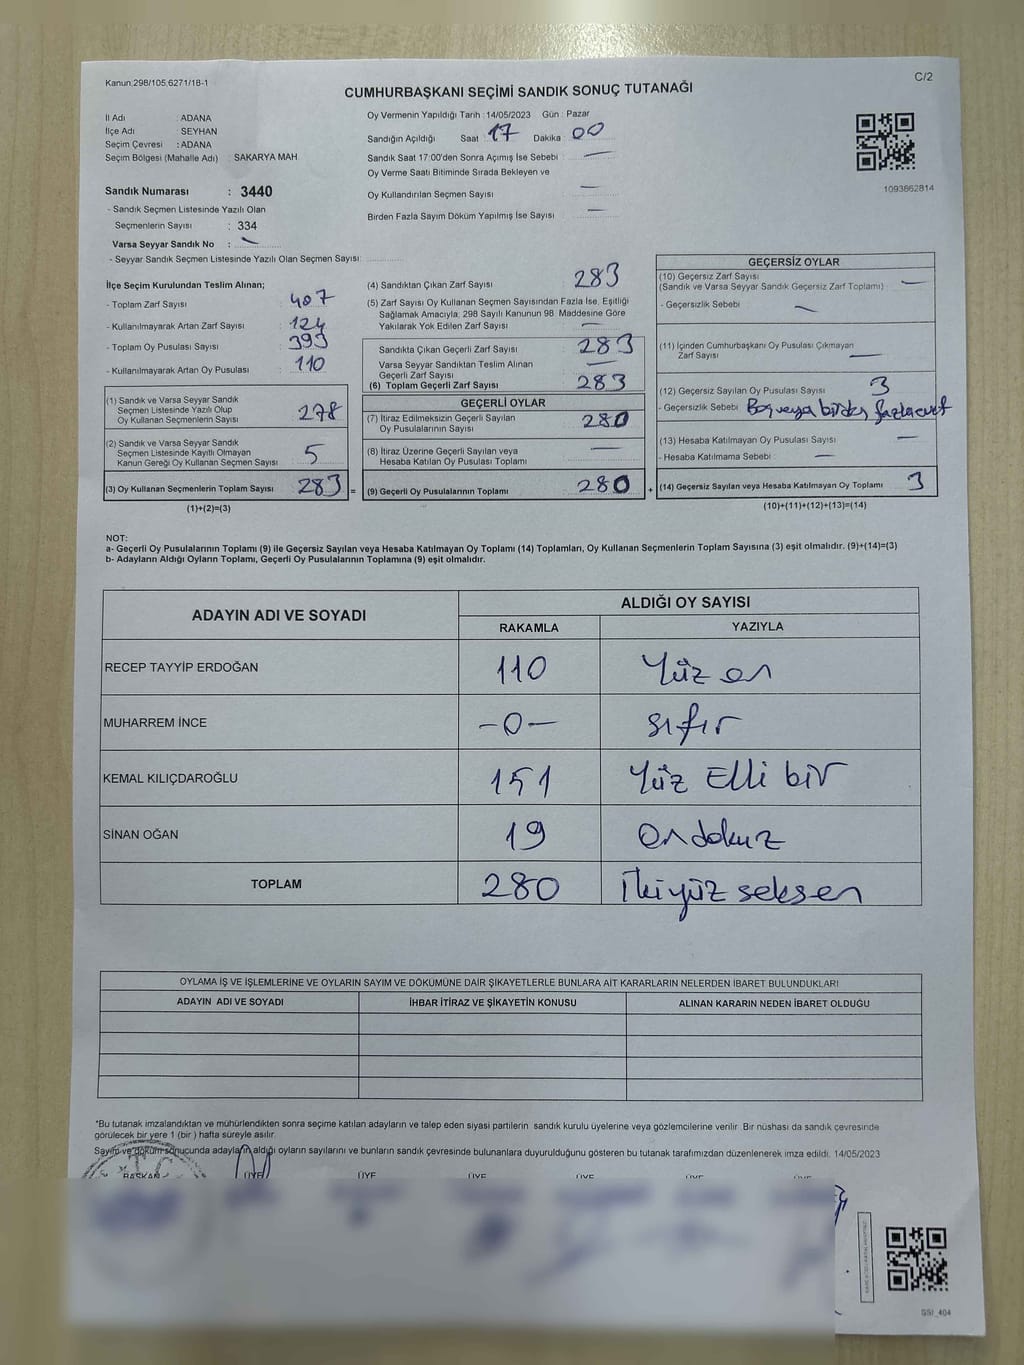 Kanun:298/105,6271/18-1
C/2
CUMHURBAŞKANI SEÇİMİ SANDIK SONUÇ TUTANAĞI
İl Adı : ADANA
İlçe Adı : SEYHAN
Seçim Çevresi : ADANA
Seçim Bölgesi (Mahalle Adı) : SAKARYA MAH
Sandık Numarası : 3440
- Sandık Seçmen Listesinde Yazılı Olan
Seçmenlerin Sayısı : 334
Varsa Seyyar Sandık No : —
- Seyyar Sandık Seçmen Listesinde Yazılı Olan Seçmen Sayısı:
Oy Vermenin Yapıldığı Tarih : 14/05/2023 Gün : Pazar
Sandığın Açıldığı Saat 17 Dakika 00
Sandık Saat 17:00'den Sonra Açımış İse Sebebi : —
Oy Verme Saati Bitiminde Sırada Bekleyen ve
Oy Kullandırılan Seçmen Sayısı —
Birden Fazla Sayım Döküm Yapılmış İse Sayısı —
1093862814
İlçe Seçim Kurulundan Teslim Alınan;
- Toplam Zarf Sayısı : 407
- Kullanılmayarak Artan Zarf Sayısı : 124
- Toplam Oy Pusulası Sayısı : 393
- Kullanılmayarak Artan Oy Pusulası : 110
(1) Sandık ve Varsa Seyyar Sandık
Seçmen Listesinde Yazılı Olup
Oy Kullanan Seçmenlerin Sayısı : 278
(2) Sandık ve Varsa Seyyar Sandık
Seçmen Listesinde Kayıtlı Olmayan
Kanun Gereği Oy Kullanan Seçmen Sayısı : 5
(3) Oy Kullanan Seçmenlerin Toplam Sayısı : 283 =
(1)+(2)=(3)
(4) Sandıktan Çıkan Zarf Sayısı 283
(5) Zarf Sayısı Oy Kullanan Seçmen Sayısından Fazla İse, Eşitliği
Sağlamak Amacıyla; 298 Sayılı Kanunun 98. Maddesine Göre
Yakılarak Yok Edilen Zarf Sayısı —
Sandıkta Çıkan Geçerli Zarf Sayısı : 283
Varsa Seyyar Sandıktan Teslim Alınan
Geçerli Zarf Sayısı —
(6) Toplam Geçerli Zarf Sayısı : 283
GEÇERLİ OYLAR
(7) İtiraz Edilmeksizin Geçerli Sayılan
Oy Pusulalarının Sayısı : 280
(8) İtiraz Üzerine Geçerli Sayılan veya
Hesaba Katılan Oy Pusulası Toplamı : —
(9) Geçerli Oy Pusulalarının Toplamı : 280 +
GEÇERSİZ OYLAR
(10) Geçersiz Zarf Sayısı
(Sandık ve Varsa Seyyar Sandık Geçersiz Zarf Toplamı) : —
- Geçersizlik Sebebi : —
(11) İçinden Cumhurbaşkanı Oy Pusulası Çıkmayan
Zarf Sayısı : —
(12) Geçersiz Sayılan Oy Pusulası Sayısı : 3
- Geçersizlik Sebebi : Boş veya birden fazla evet
(13) Hesaba Katılmayan Oy Pusulası Sayısı : —
- Hesaba Katılmama Sebebi : —
(14) Geçersiz Sayılan veya Hesaba Katılmayan Oy Toplamı : 3
(10)+(11)+(12)+(13)=(14)
NOT:
a- Geçerli Oy Pusulalarının Toplamı (9) ile Geçersiz Sayılan veya Hesaba Katılmayan Oy Toplamı (14) Toplamları, Oy Kullanan Seçmenlerin Toplam Sayısına (3) eşit olmalıdır. (9)+(14)=(3)
b- Adayların Aldığı Oyların Toplamı, Geçerli Oy Pusulalarının Toplamına (9) eşit olmalıdır.
ADAYIN ADI VE SOYADI
ALDIĞI OY SAYISI
RAKAMLA YAZIYLA
RECEP TAYYİP ERDOĞAN 110 Yüz on
MUHARREM İNCE -0- sıfır
KEMAL KILIÇDAROĞLU 151 Yüz Elli bir
SİNAN OĞAN 19 Ondokuz
TOPLAM 280 İkiyüz seksen
OYLAMA İŞ VE İŞLEMLERİNE VE OYLARIN SAYIM VE DÖKÜMÜNE DAİR ŞİKAYETLERLE BUNLARA AİT KARARLARIN NELERDEN İBARET BULUNDUKLARI
ADAYIN ADI VE SOYADI İHBAR İTİRAZ VE ŞİKAYETİN KONUSU ALINAN KARARIN NEDEN İBARET OLDUĞU
*Bu tutanak imzalandıktan ve mühürlendikten sonra seçime katılan adayların ve talep eden siyasi partilerin sandık kurulu üyelerine veya gözlemcilerine verilir. Bir nüshası da sandık çevresinde
görülecek bir yere 1 (bir ) hafta süreyle asılır.
Sayım ve döküm sonucunda adayların aldığı oyların sayılarını ve bunların sandık çevresinde bulunanlara duyurulduğunu gösteren bu tutanak tarafımızdan düzenlenerek imza edildi. 14/05/2023
T.C.
BAŞKAN ÜYE ÜYE ÜYE ÜYE ÜYE ÜYE
GSI_404